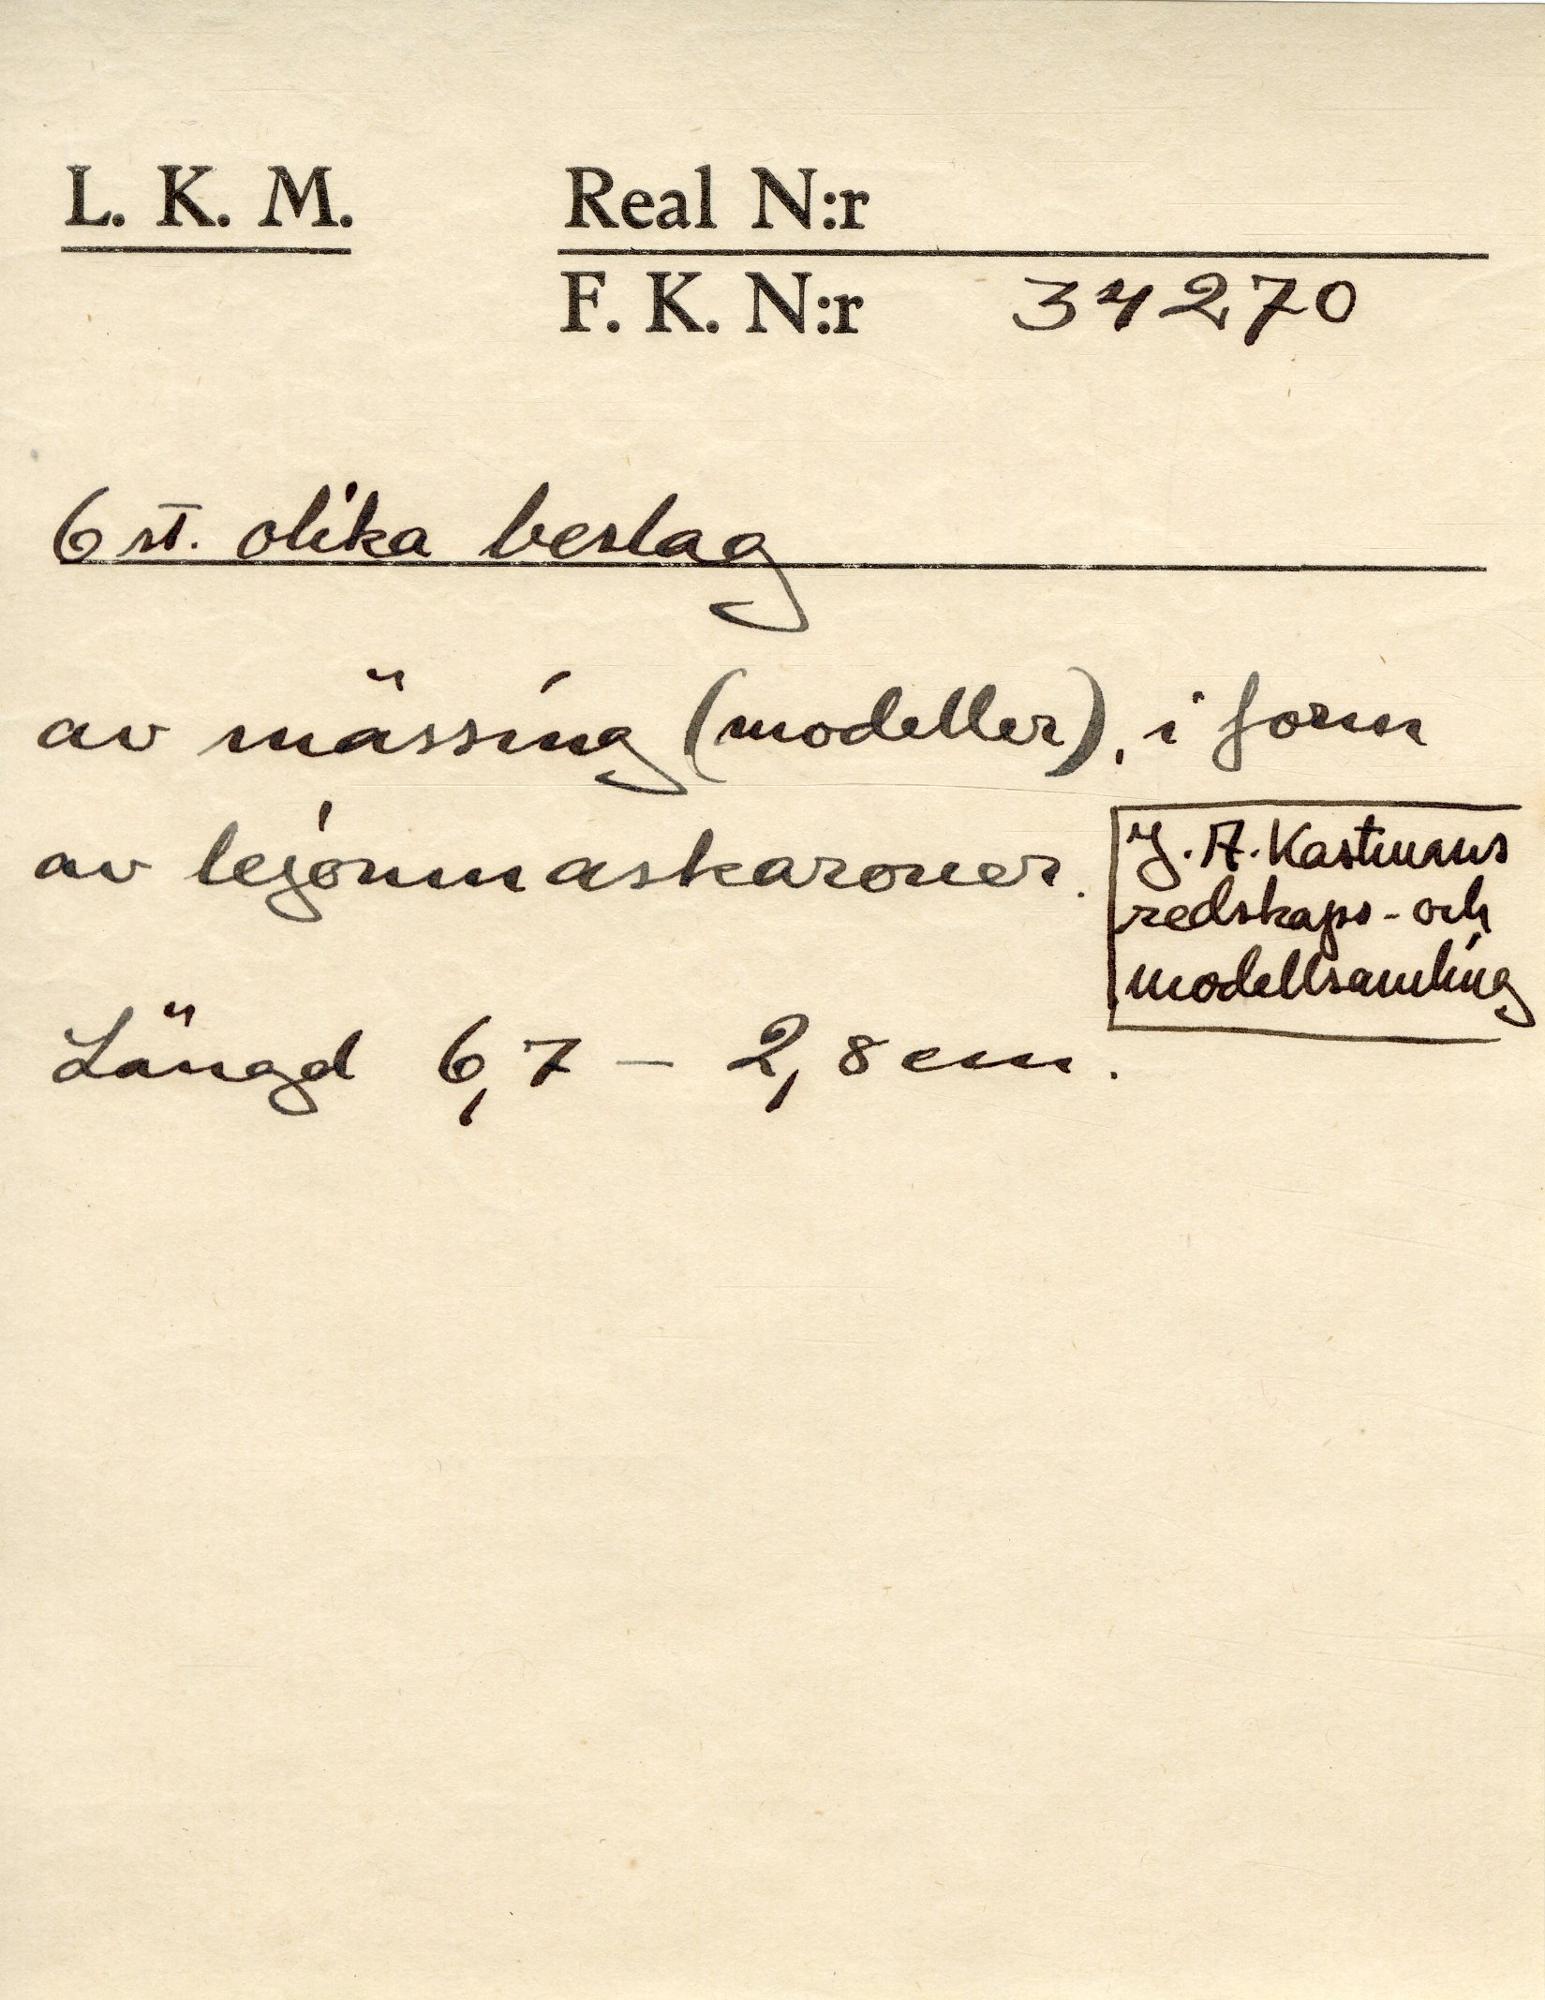 L. K. M.
Real N:r
F. K. N:r 34270
6 st. olika beslag
av mässing (modeller), i form
av lejonmaskaroner.
J. A. Kastmans
redskaps- och
modellsamling
Längd 6,7 – 2,8 cm.